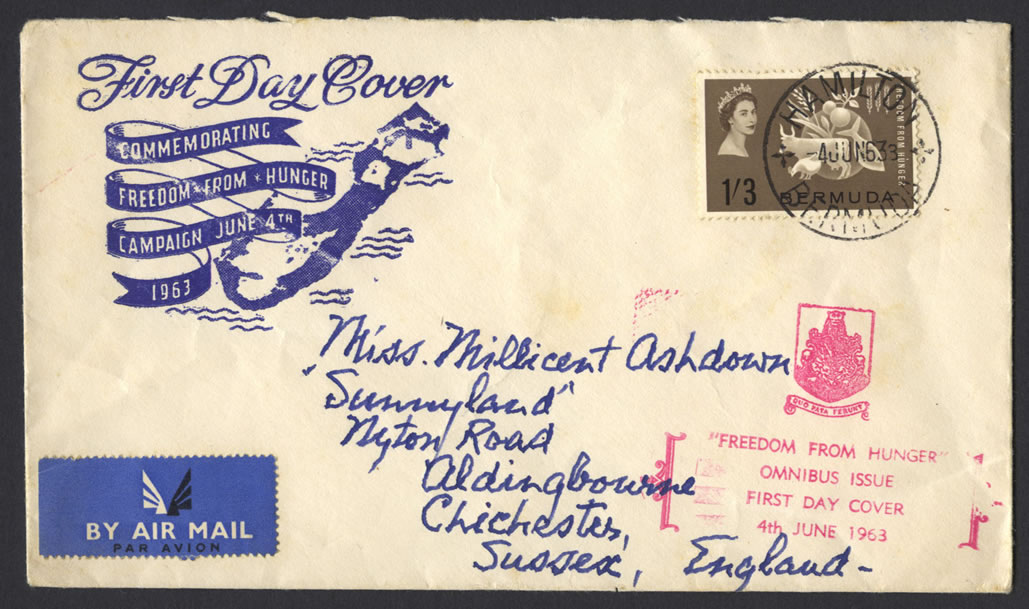 First Day Cover
COMMEMORATING
FREEDOM * FROM * HUNGER
CAMPAIGN JUNE 4TH
1963
HAMILTON
-4 JUN 63
BERMUDA
FREEDOM FROM HUNGER
1/3
BERMUDA
Miss. Millicent Ashdown
"Sunnyland"
Nyton Road
Aldingbourne
Chichester,
Sussex, England-
QUO FATA FERUNT
"FREEDOM FROM HUNGER"
OMNIBUS ISSUE
FIRST DAY COVER
4th JUNE 1963
BY AIR MAIL
PAR AVION